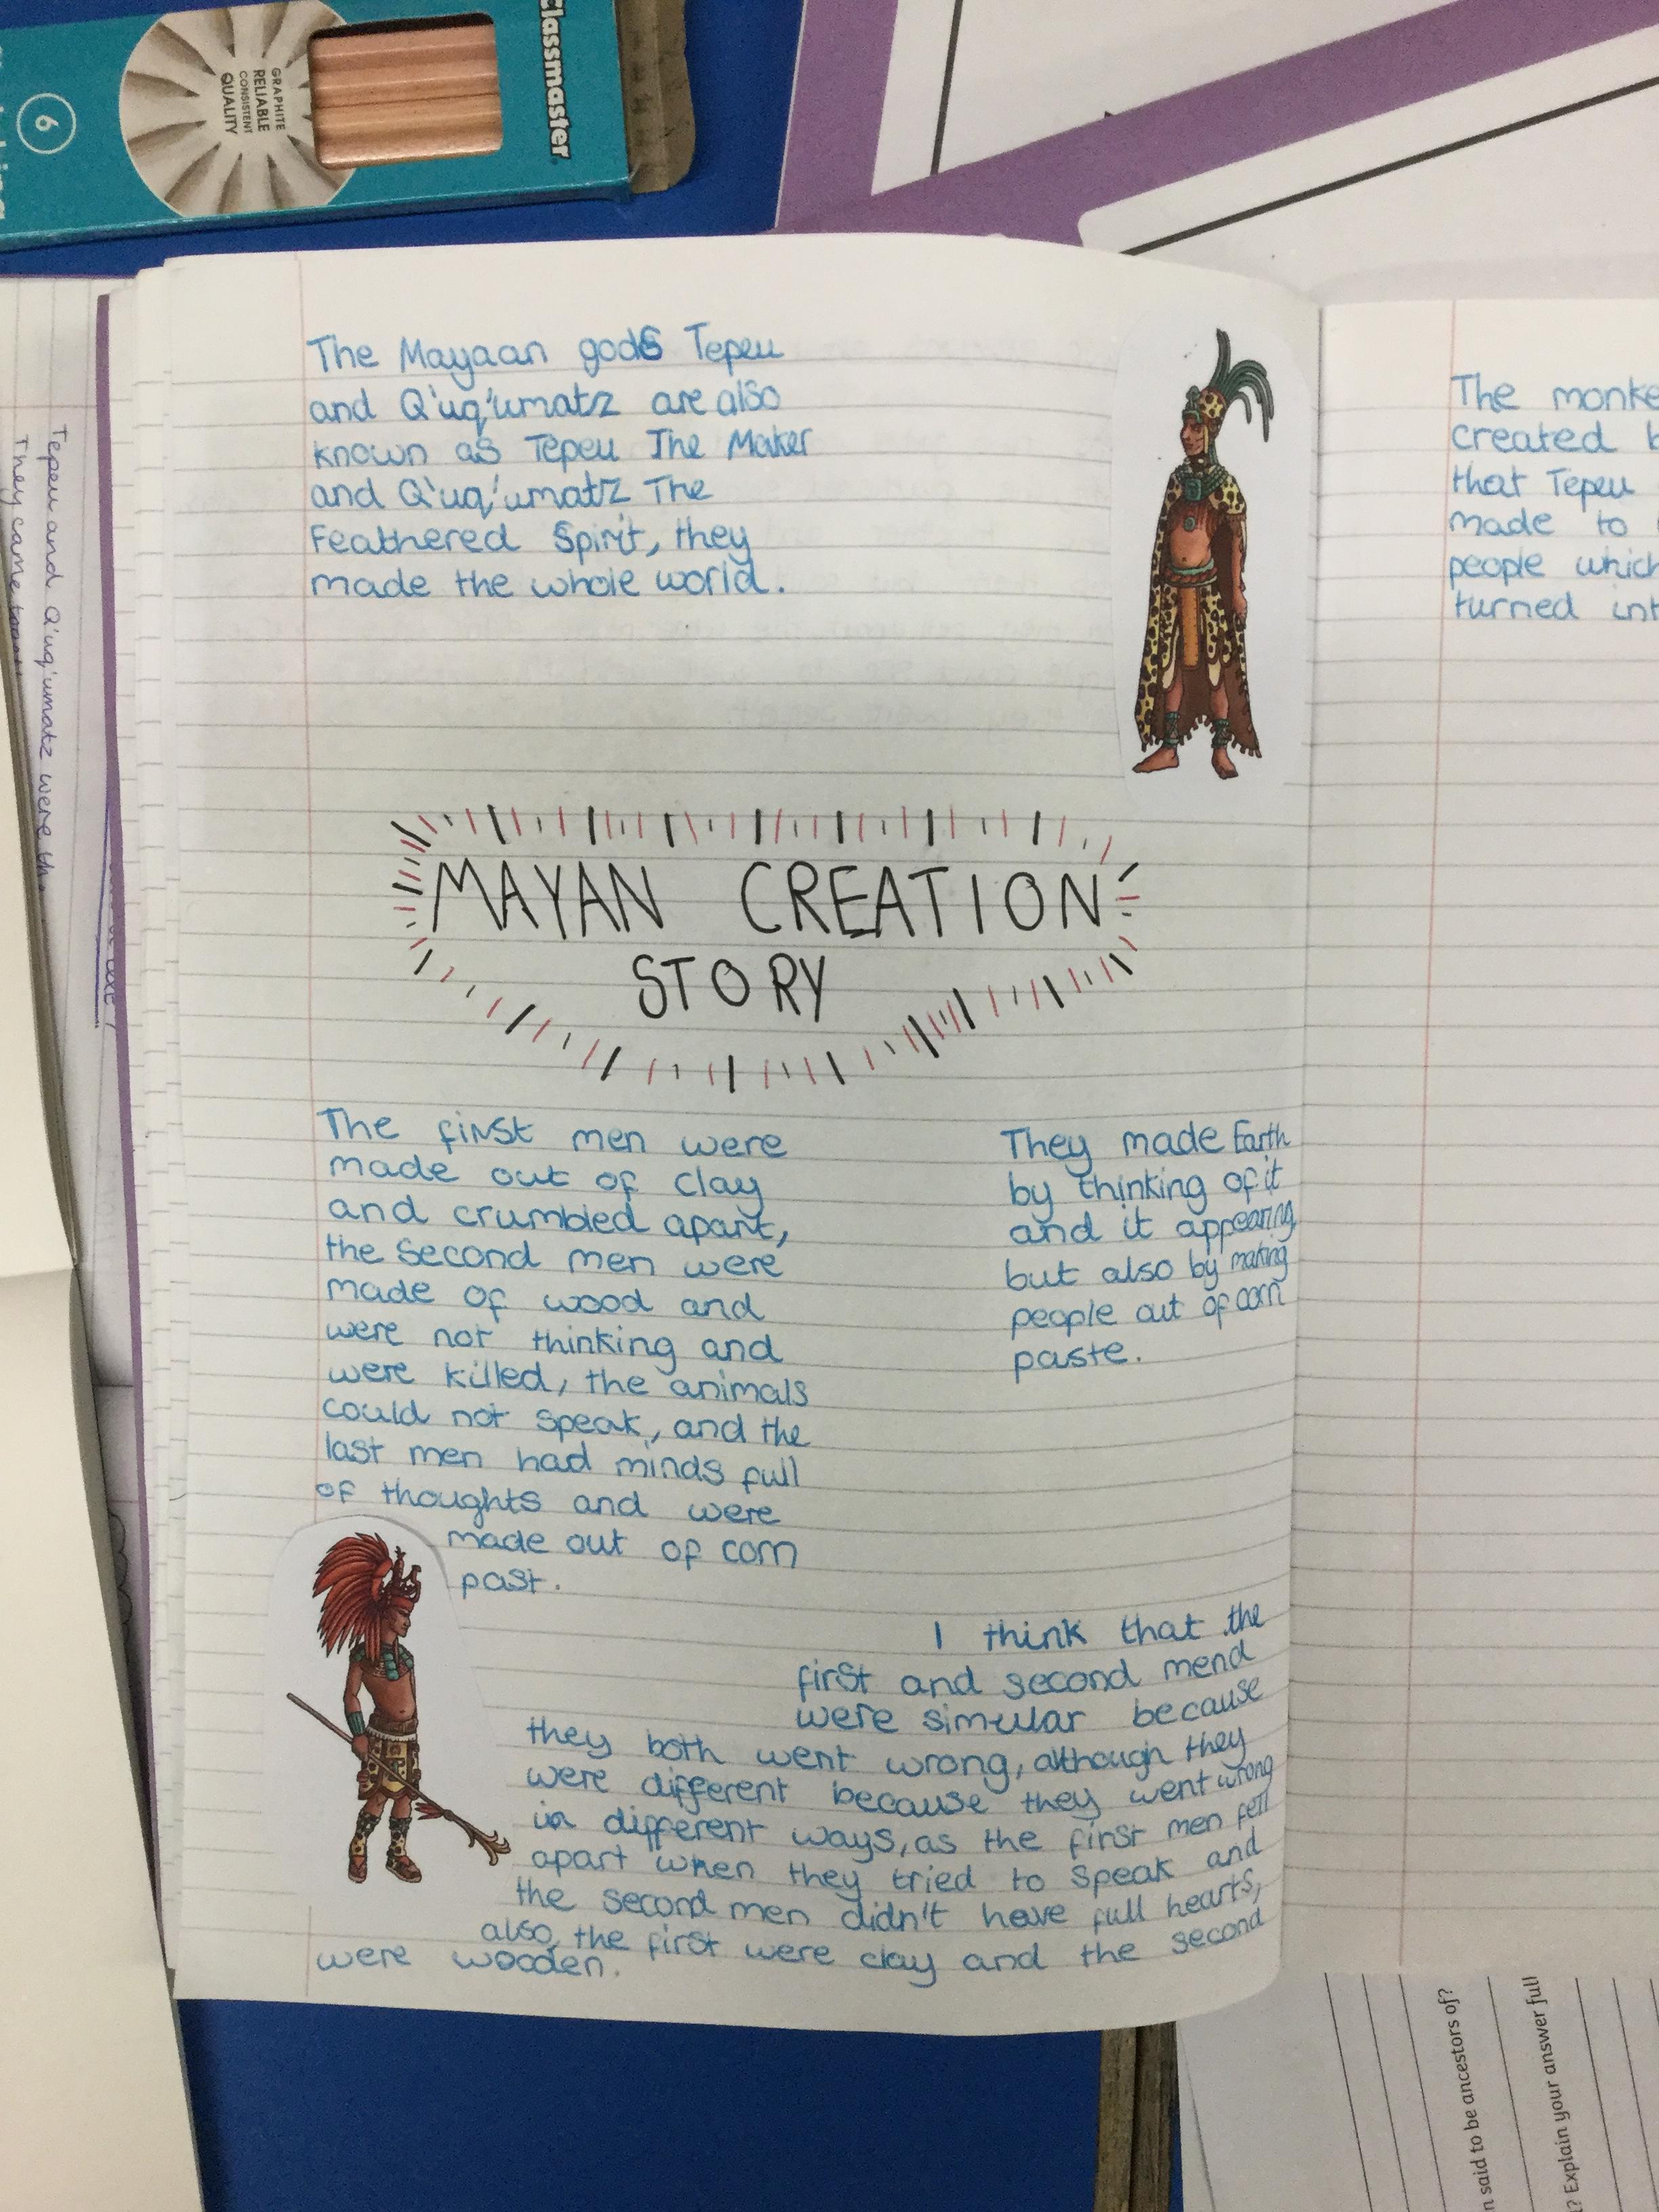 Classmaster
GRAPHITE
RELIABLE
CONSISTENT
QUALITY
6
The Mayaan gods Tepeu
and Q'uq'umatz are also
known as Tepeu The Maker
and Q'uq'umatz The
Feathered Spirit, they
made the whole world.
MAYAN CREATION
STORY
The first men were
made out of clay
and crumbled apart,
the second men were
made of wood and
were not thinking and
were killed, the animals
could not speak, and the
last men had minds full
of thoughts and were
made out of corn
past.
They made Earth
by thinking of it
and it appearing,
but also by making
people out of corn
paste.
I think that the
first and second mend
were simular because
they both went wrong, although they
were different because they went wrong
in different ways, as the first men fell
apart when they tried to speak and
the second men didn't have full hearts,
also, the first were clay and the second
were wooden.
The monke
created b
that Tepeu
made to
people which
turned int
Tepeu and Q'uq'umatz were th
They came
n said to be ancestors of?
? Explain your answer full